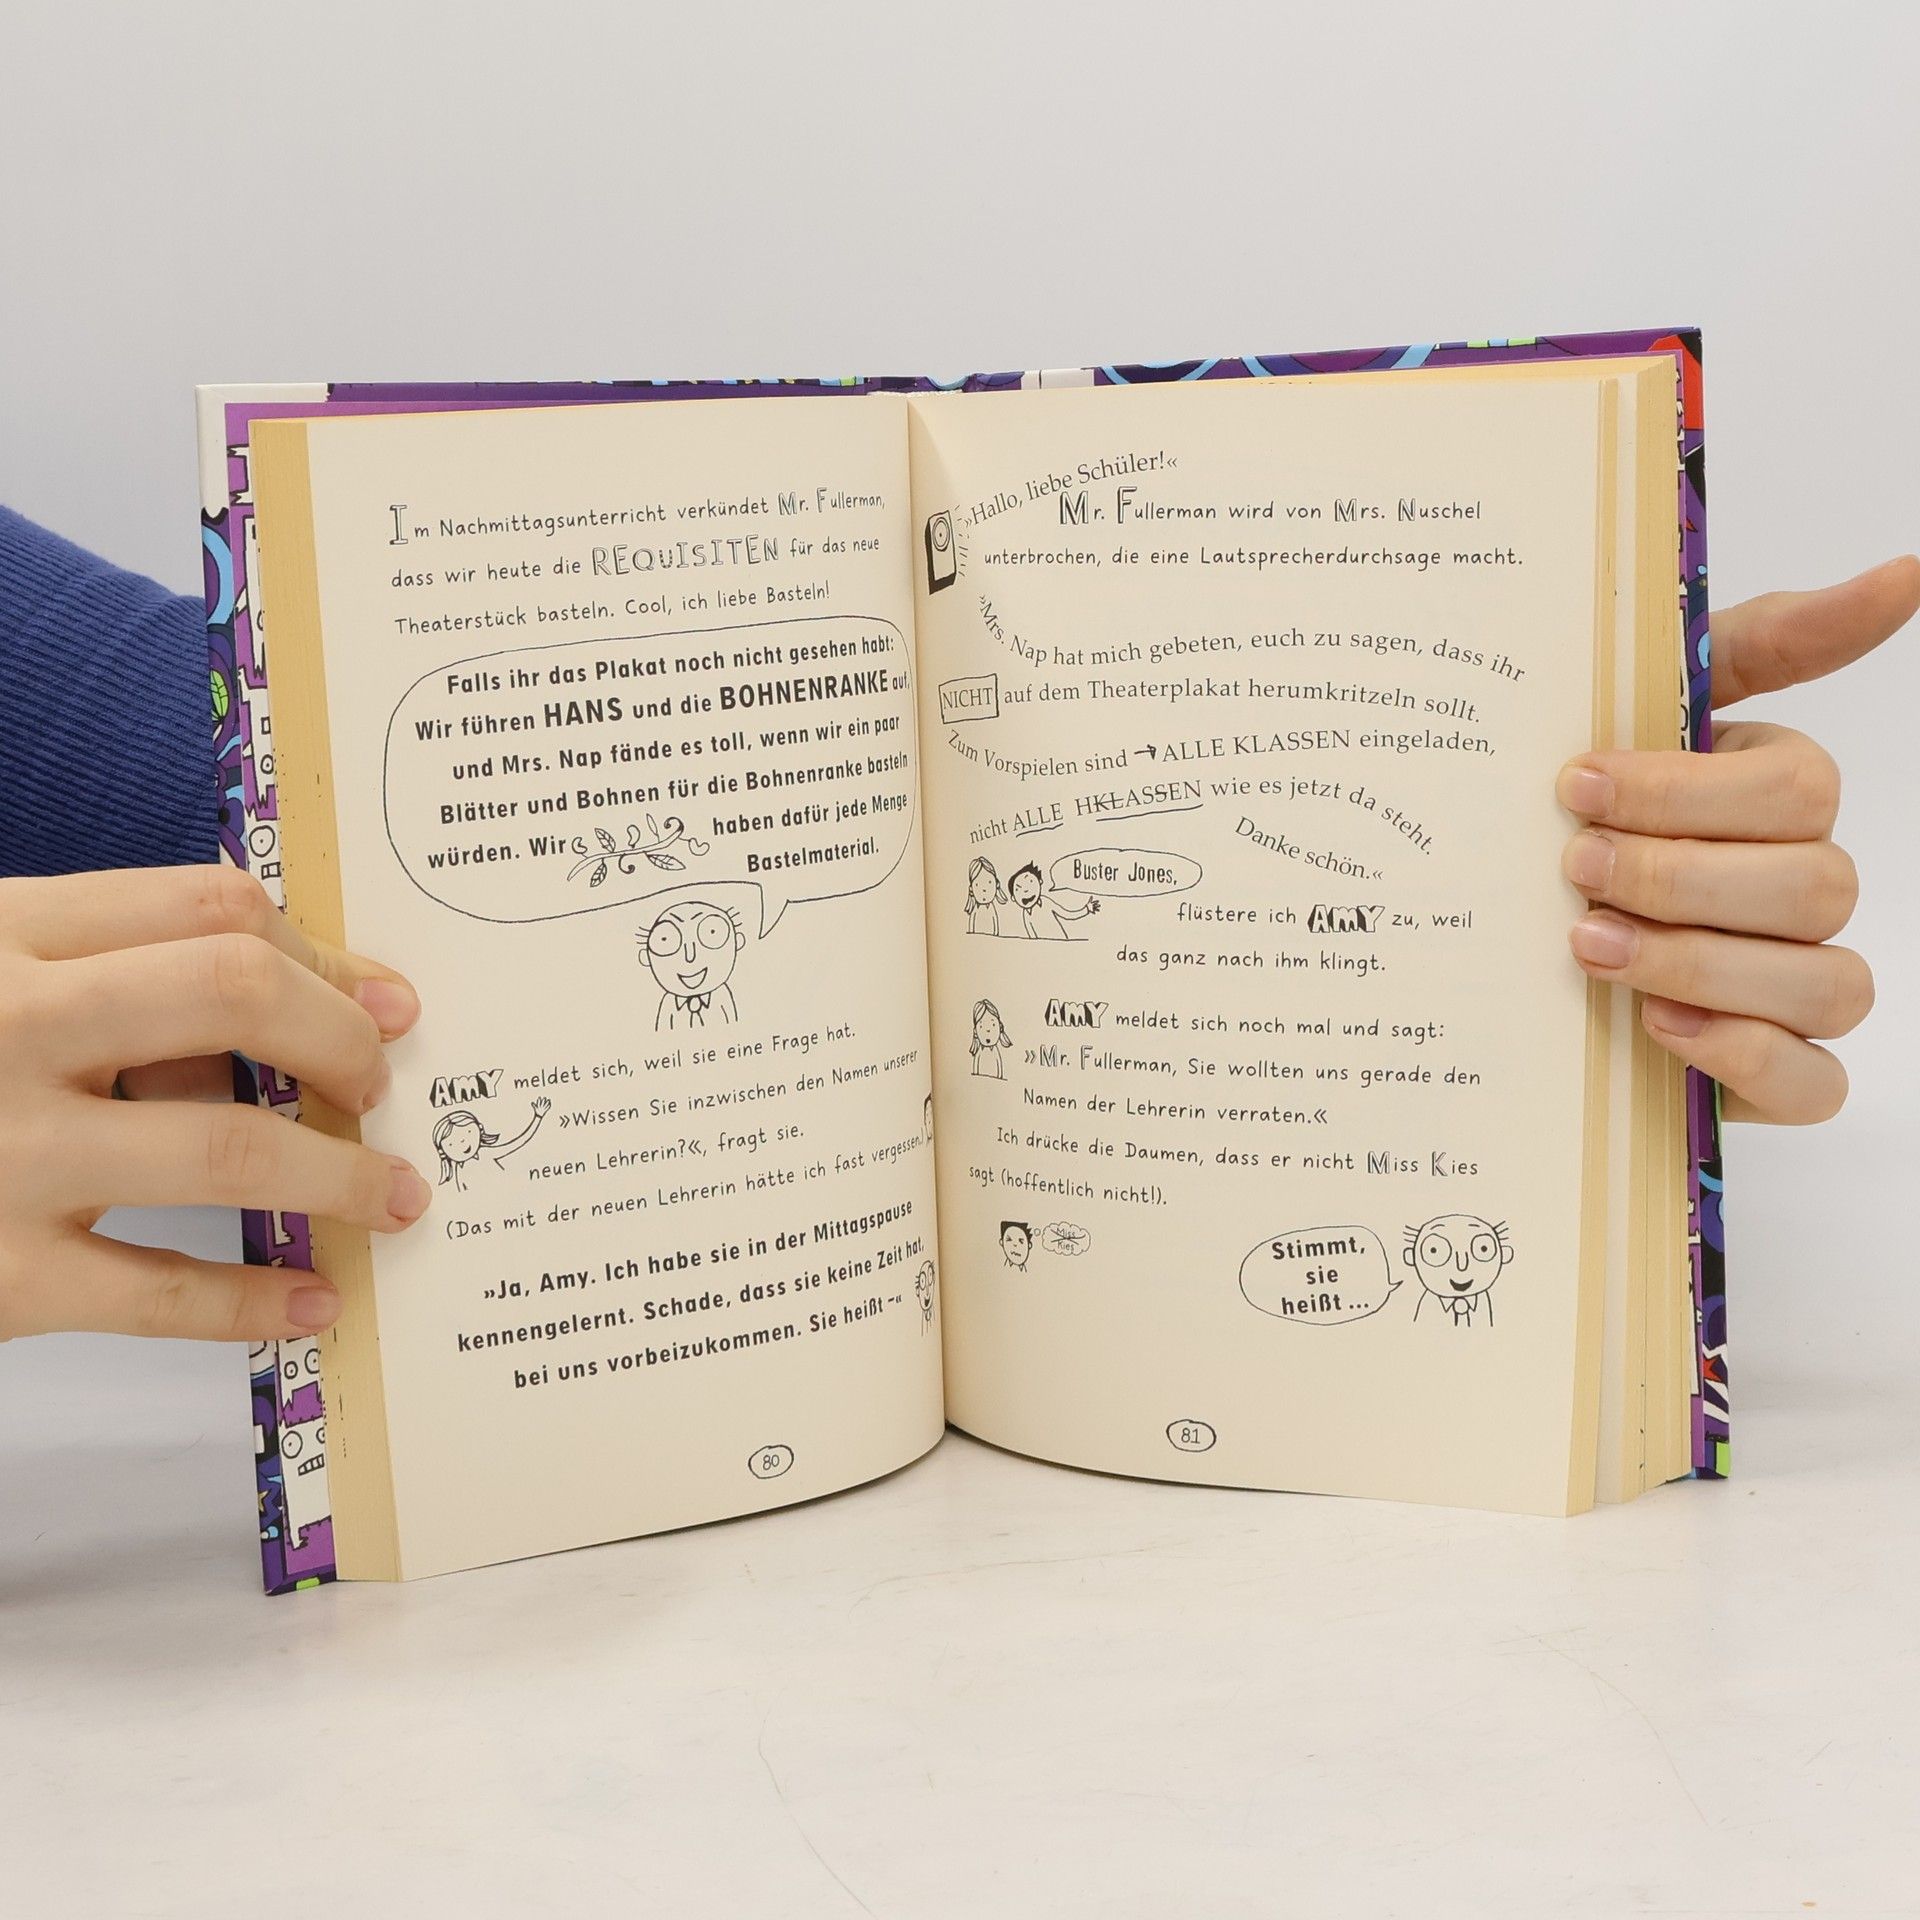 Im Nachmittagsunterricht verkündet Mr. Fullerman,
dass wir heute die REQUISITEN für das neue
Theaterstück basteln. Cool, ich liebe Basteln!
Falls ihr das Plakat noch nicht gesehen habt:
Wir führen HANS und die BOHNENRANKE auf,
und Mrs. Nap fände es toll, wenn wir ein paar
Blätter und Bohnen für die Bohnenranke basteln
würden. Wir haben dafür jede Menge
Bastelmaterial.
AMY meldet sich, weil sie eine Frage hat.
»Wissen Sie inzwischen den Namen unserer
neuen Lehrerin?«, fragt sie.
(Das mit der neuen Lehrerin hätte ich fast vergessen.)
»Ja, Amy. Ich habe sie in der Mittagspause
kennengelernt. Schade, dass sie keine Zeit hat,
bei uns vorbeizukommen. Sie heißt –«
80
»Hallo, liebe Schüler!«
Mr. Fullerman wird von Mrs. Nuschel
unterbrochen, die eine Lautsprecherdurchsage macht.
»Mrs. Nap hat mich gebeten, euch zu sagen, dass ihr
NICHT auf dem Theaterplakat herumkritzeln sollt.
Zum Vorspielen sind → ALLE KLASSEN eingeladen,
nicht ALLE HKLASSEN wie es jetzt da steht.
Danke schön.«
Buster Jones,
flüstere ich AMY zu, weil
das ganz nach ihm klingt.
AMY meldet sich noch mal und sagt:
»Mr. Fullerman, Sie wollten uns gerade den
Namen der Lehrerin verraten.«
Ich drücke die Daumen, dass er nicht Miss Kies
sagt (hoffentlich nicht!).
Miss
Kies
Stimmt,
sie
heißt ...
81